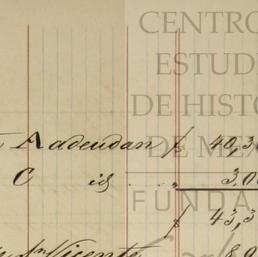 CENTRO
ESTUD
DE HISTO
DE MÉX
FUNDA
A adeudan $ 40,3
C id . . " 3,00
$ 43,3
Vicente